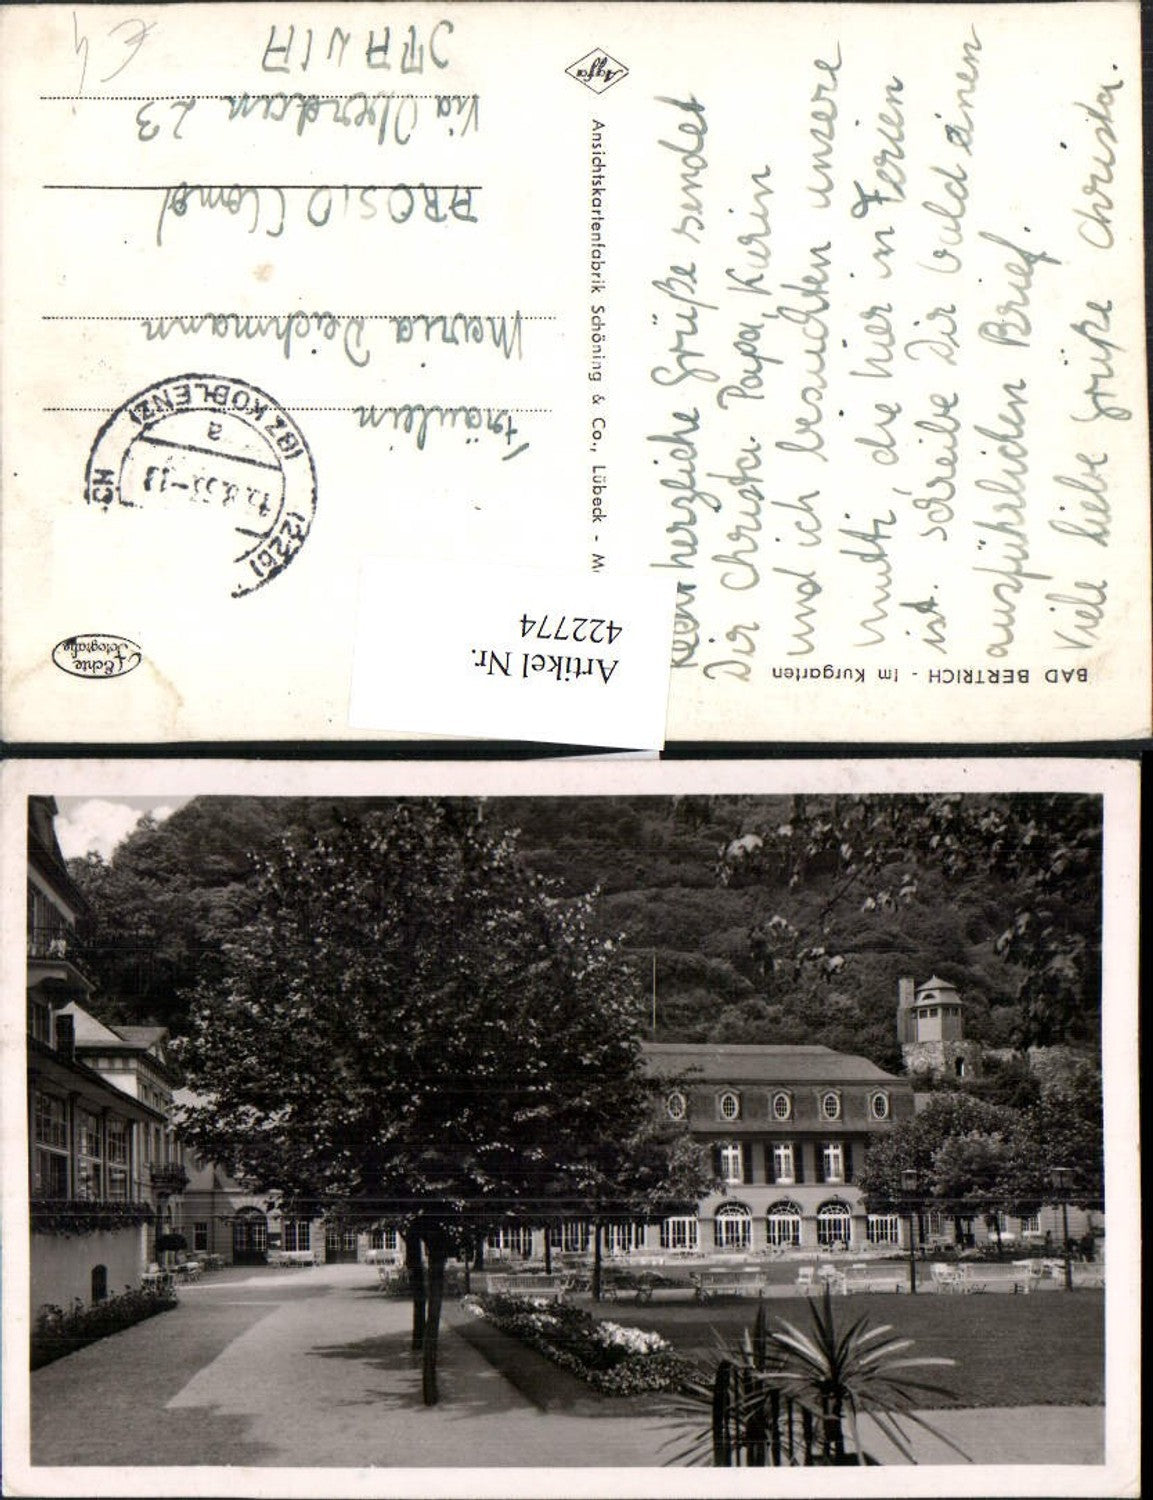 BAD BERTRICH - Im Kurgarten
herzliche Grüße sendet
Dir Christa. Papa, Karin
und ich besuchten unsere
Mutti, die hier in Ferien
ist. schreibe Dir bald einen
ausführlichen Brief.
Viele liebe Grüße Christa.
Agfa
Ansichtskartenfabrik Schöning & Co., Lübeck -
Echte
Fotografie
(22b)
(BZ KOBLENZ)
a
Fräulein
Maria Deichmann
AROSIO (Como)
Via Oberdan 23
ITALIA
€ 4
Artikel Nr.
422774